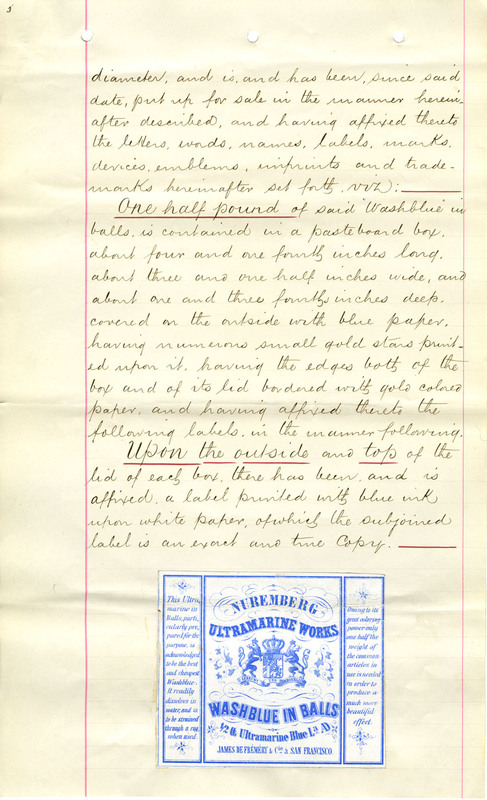 diameter, and is, and has been, since said
date, put up for sale in the manner herein-
after described, and having affixed thereto
the letters, words, names, labels, marks,
devices, emblems, imprints and trade-
marks hereinafter set forth, viz:
One half pound of said "Washblue" in
balls, is contained in a pasteboard box,
about four and one fourth inches long,
about three and one half inches wide, and
about one and three fourths inches deep,
covered on the outside with blue paper,
having numerous small gold stars print-
ed upon it, having the edges both of the
box and of its lid bordered with gold colored
paper, and having affixed thereto the
following labels, in the manner following.
Upon the outside and top of the
lid of each box, there has been, and is
affixed, a label printed with blue ink
upon white paper, of which the subjoined
label is an exact and true copy.
This Ultra
marine in
Balls, parti-
cularly pre
pared for the
purpose, is
acknowledged
to be the best
and cheapest
Washblue.
It readily
dissolves in
water, and is
to be strained
through a rag
when used.
NUREMBERG
ULTRAMARINE WORKS
WASHBLUE IN BALLS
1/2 lb Ultramarine Blue La. A)
JAMES DE FRÉMERY & Co. SAN FRANCISCO
Owing to its
great coloring
power only
one half the
weight of
the common
articles in
use is needed
in order to
produce a
much more
beautiful
effect.